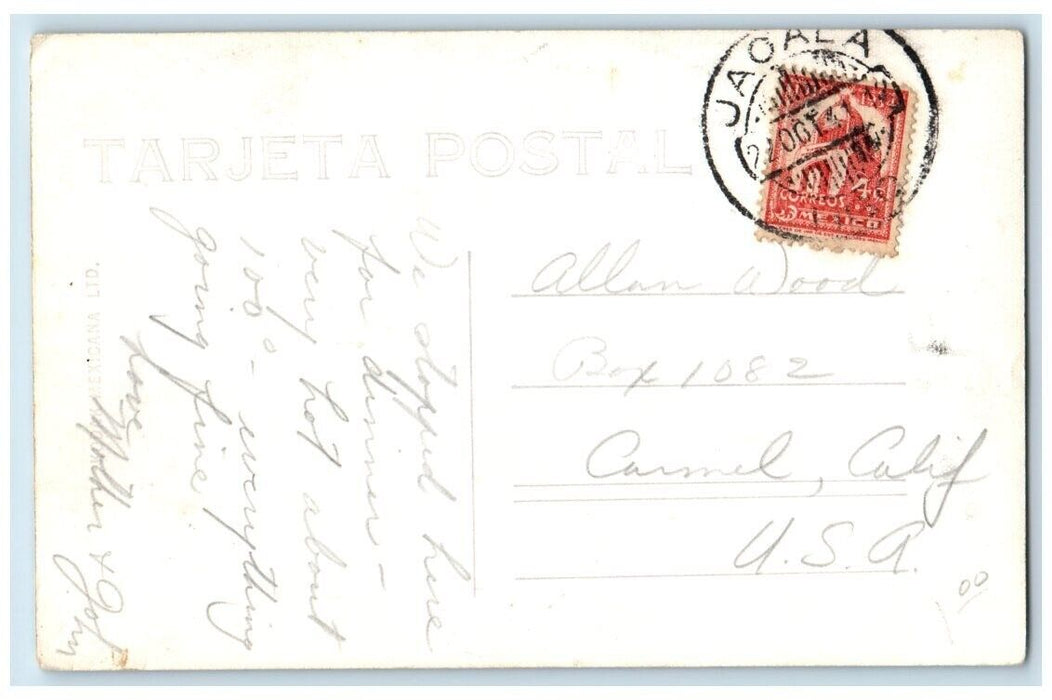 TARJETA POSTAL
JACALA
OCT 41
4c
CORREOS
MEXICO
We stopped here
for dinner -
very hot about
100° - everything
going fine.
Love,
Mother & John
MEXICANA LTD.
Allan Wood
Box 1082
Carmel, Calif
U.S.A.
00